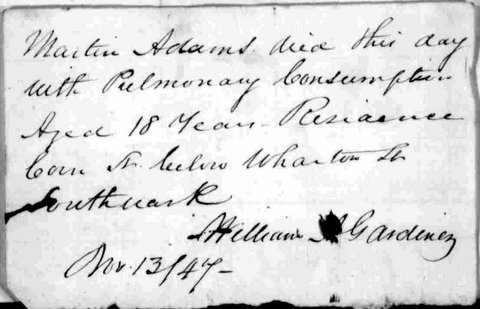 Martin Adams died this day
with Pulmonary Consumption
Aged 18 Years Residence
Corn St. below Wharton St
Southwark
William Gardiner
Nov. 13/47-